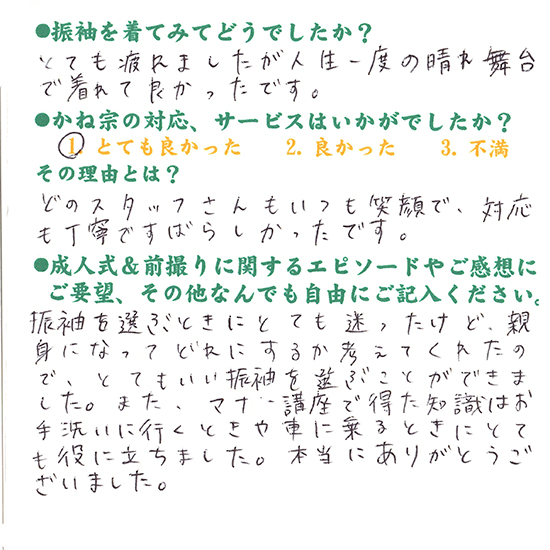 ●振袖を着てみてどうでしたか？
とても疲れましたが人生一度の晴れ舞台
で着れて良かったです。
●かね宗の対応、サービスはいかがでしたか？
1 とても良かった 2. 良かった 3. 不満
その理由とは？
どのスタッフさんもいつも笑顔で、対応
も丁寧ですばらしかったです。
●成人式&前撮りに関するエピソードやご感想に
ご要望、その他なんでも自由にご記入ください。
振袖を選ぶときにとても迷ったけど、親
身になってどれにするか考えてくれたの
で、とてもいい振袖を選ぶことができま
した。また、マナー講座で得た知識はお
手洗いに行くときや車に乗るときにとて
も役に立ちました。本当にありがとうご
ざいました。